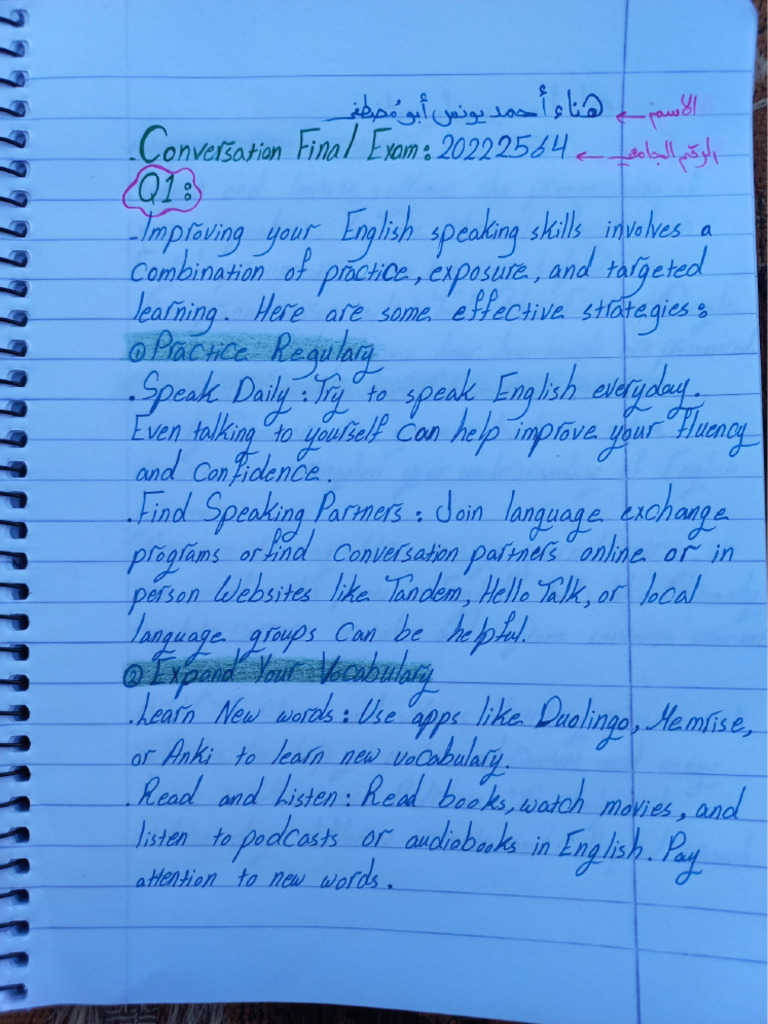 هناء أحمد يونس أبو مصطفى ← الاسم
. Conversation Final Exam: 20222564 ← الرقم الجامعي
Q1:
- Improving your English speaking skills involves a
combination of practice, exposure, and targeted
learning. Here are some effective strategies:
① Practice Regulary
. Speak Daily: Try to speak English everyday.
Even talking to yourself can help improve your fluency
and confidence.
. Find Speaking Partners: Join language exchange
programs or find conversation partners online or in
person Websites like Tandem, Hello Talk, or local
language groups can be helpful.
② Expand Your Vocabulary
. Learn New words: Use apps like Duolingo, Memrise,
or Anki to learn new vocabulary.
. Read and Listen: Read books, watch movies, and
listen to podcasts or audiobooks in English. Pay
attention to new words.